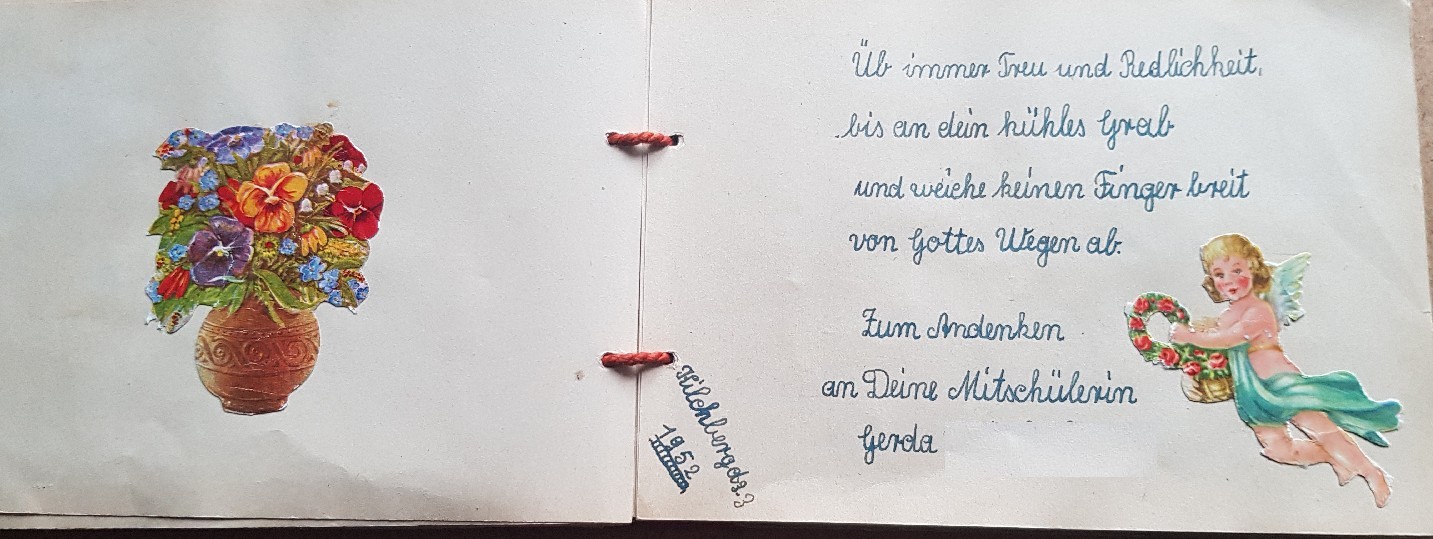 Üb immer Treu und Redlichkeit,
bis an dein kühles Grab
und weiche keinen Finger breit
von Gottes Wegen ab.
Zum Andenken
an Deine Mitschülerin
Gerda
Kilchberg d. 3
1952